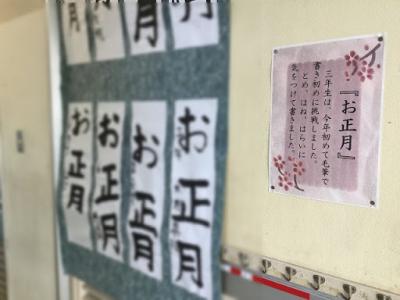 『お正月』
三年生は、今年初めて毛筆で
書き初めに挑戦しました。
とめ、はね、はらいに
気をつけて書きました。
お正月
お正月
お正月
お正月
月
月